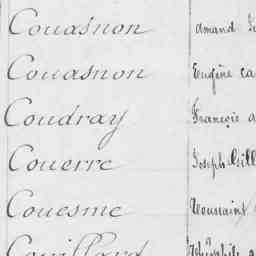 Couasnon Amand
Couasnon Eugène
Coudray François
Couerre Joseph
Couesme Toussaint
Couillard Théophile